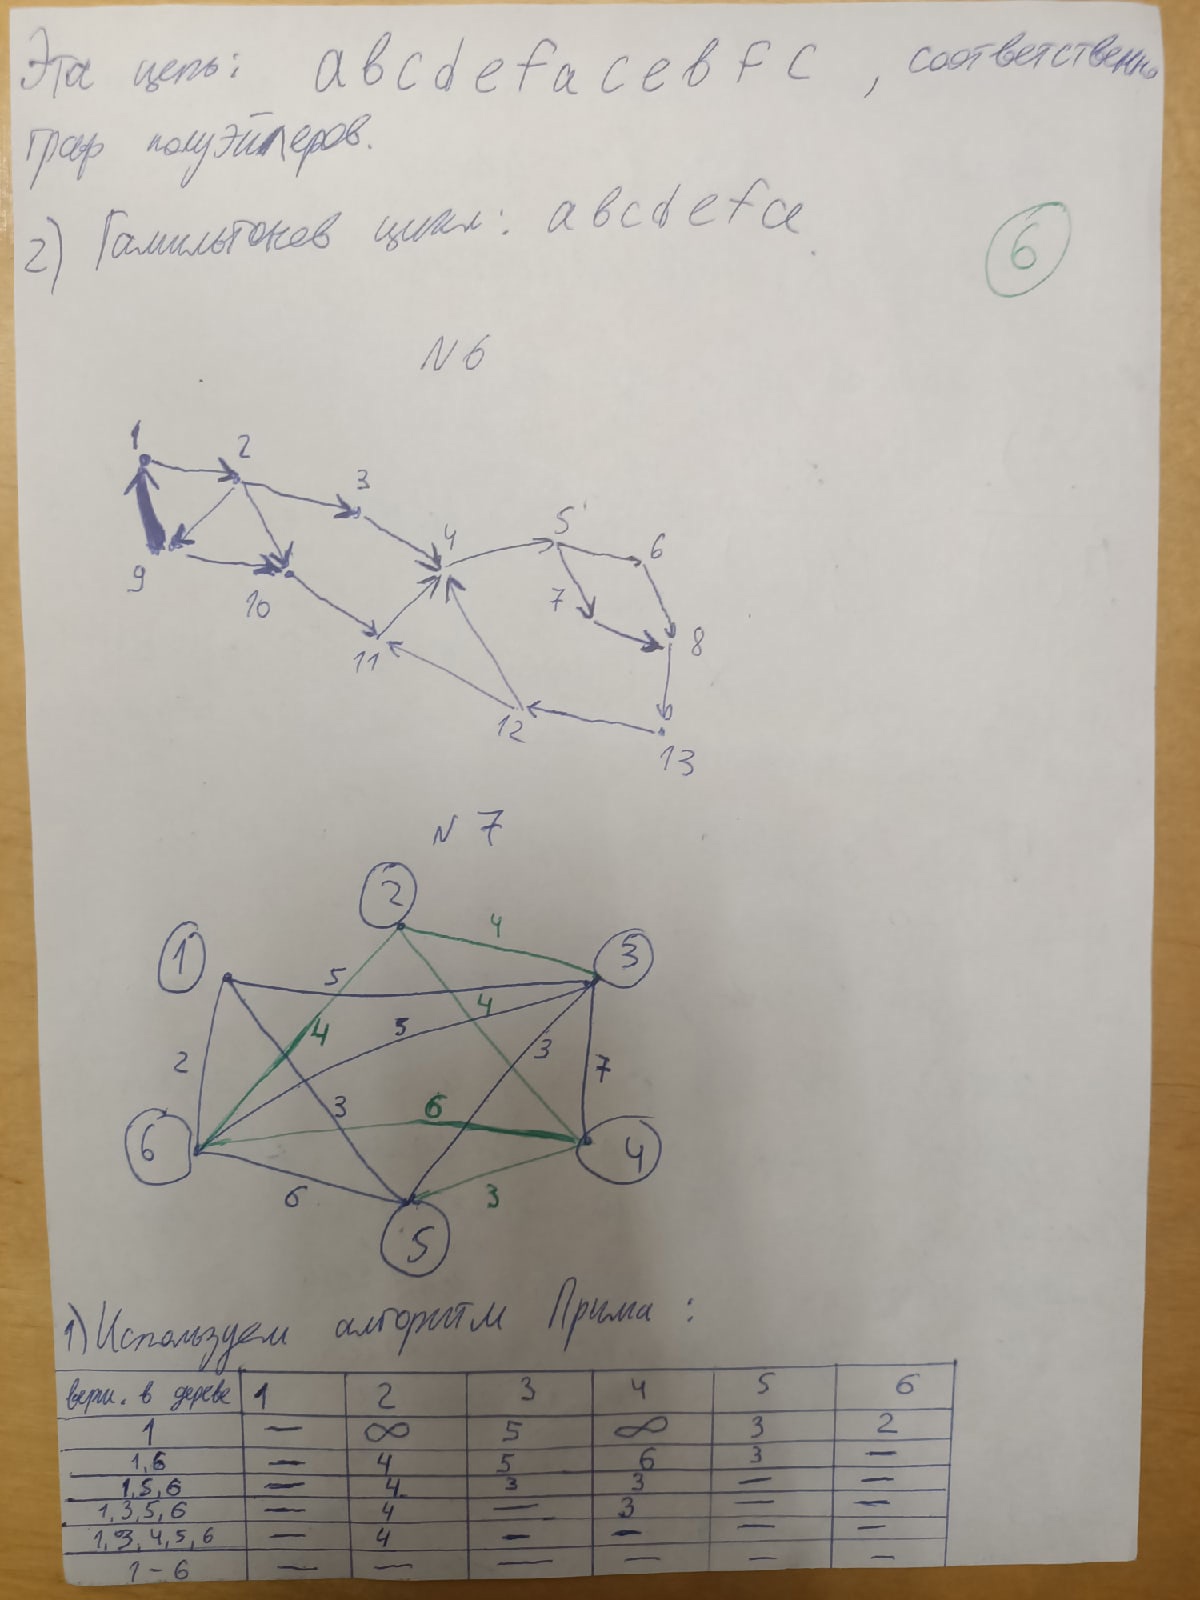 Эта цепь: abcdefacebfc, соответственно
граф полуэйлеров.
2) Гамильтонов цикл: abcdefa
6
N6
1
2
3
4
5
6
7
8
9
10
11
12
13
N 7
2
4
1
3
5
4
4
5
3
7
2
3
6
6
4
6
3
5
1) Используем алгоритм Прима:
верш. в дереве 1 2 3 4 5 6
1 — ∞ 5 ∞ 3 2
1,6 — 4 5 6 3 —
1,5,6 — 4 3 3 — —
1,3,5,6 — 4 — 3 — —
1,3,4,5,6 — 4 — — — —
1-6 — — — — — —